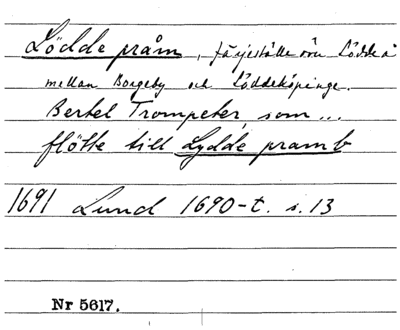 Lödde pråm, färjeställe över Lödde å
mellan Borgeby och Löddeköpinge.
Bertel Trompeter, som...
flötte till Lydde pramb
1691 Lund 1690-t. s. 13
Nr 5617.